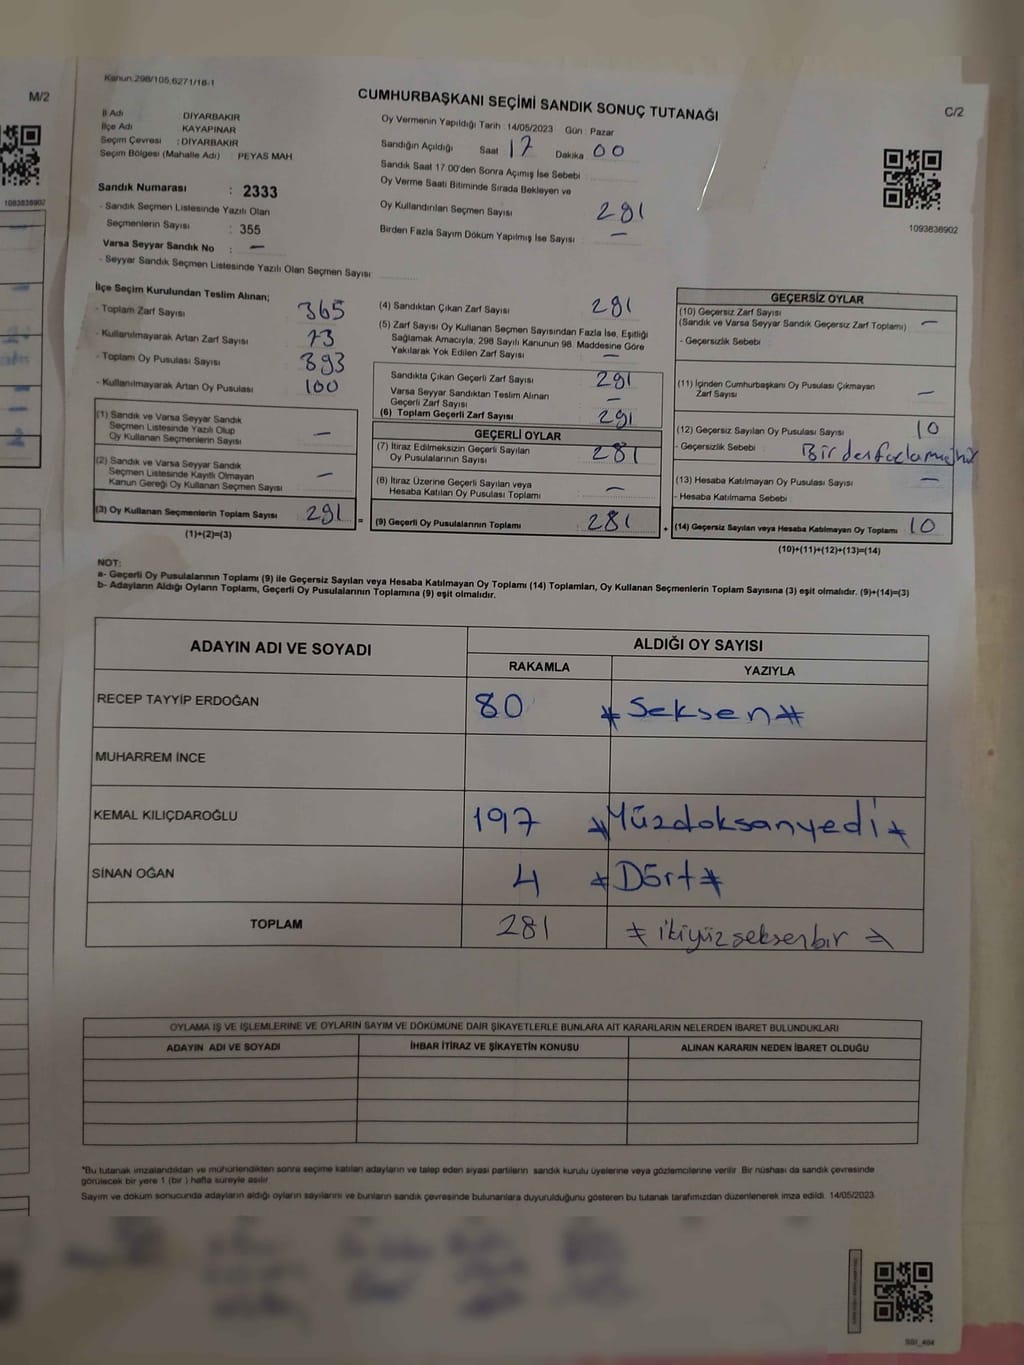 Kanun.298/105,6271/16-1
M/2
C/2
CUMHURBAŞKANI SEÇİMİ SANDIK SONUÇ TUTANAĞI
İl Adı DİYARBAKIR
İlçe Adı KAYAPINAR
Seçim Çevresi : DİYARBAKIR
Seçim Bölgesi (Mahalle Adı) : PEYAS MAH
Sandık Numarası : 2333
- Sandık Seçmen Listesinde Yazılı Olan
Seçmenlerin Sayısı : 355
Varsa Seyyar Sandık No : —
- Seyyar Sandık Seçmen Listesinde Yazılı Olan Seçmen Sayısı:
Oy Vermenin Yapıldığı Tarih : 14/05/2023 Gün : Pazar
Sandığın Açıldığı Saat 17 Dakika 00
Sandık Saat 17.00'den Sonra Açımış İse Sebebi
Oy Verme Saati Bitiminde Sırada Bekleyen ve
Oy Kullandırılan Seçmen Sayısı 291
Birden Fazla Sayım Döküm Yapılmış İse Sayısı —
1093838902
1093838902
İlçe Seçim Kurulundan Teslim Alınan;
- Toplam Zarf Sayısı 365
- Kullanılmayarak Artan Zarf Sayısı 73
- Toplam Oy Pusulası Sayısı 393
- Kullanılmayarak Artan Oy Pusulası 100
(1) Sandık ve Varsa Seyyar Sandık
Seçmen Listesinde Yazılı Olup
Oy Kullanan Seçmenlerin Sayısı —
(2) Sandık ve Varsa Seyyar Sandık
Seçmen Listesinde Kayıtlı Olmayan
Kanun Gereği Oy Kullanan Seçmen Sayısı —
(3) Oy Kullanan Seçmenlerin Toplam Sayısı 291
(1)+(2)=(3)
=
(4) Sandıktan Çıkan Zarf Sayısı 291
(5) Zarf Sayısı Oy Kullanan Seçmen Sayısından Fazla İse, Eşitliği
Sağlamak Amacıyla, 298 Sayılı Kanunun 98. Maddesine Göre
Yakılarak Yok Edilen Zarf Sayısı —
Sandıkta Çıkan Geçerli Zarf Sayısı 291
Varsa Seyyar Sandıktan Teslim Alınan
Geçerli Zarf Sayısı —
(6) Toplam Geçerli Zarf Sayısı 291
GEÇERLİ OYLAR
(7) İtiraz Edilmeksizin Geçerli Sayılan
Oy Pusulalarının Sayısı 281
(8) İtiraz Üzerine Geçerli Sayılan veya
Hesaba Katılan Oy Pusulası Toplamı —
(9) Geçerli Oy Pusulalarının Toplamı 281
+
GEÇERSİZ OYLAR
(10) Geçersiz Zarf Sayısı
(Sandık ve Varsa Seyyar Sandık Geçersiz Zarf Toplamı) —
- Geçersizlik Sebebi
(11) İçinden Cumhurbaşkanı Oy Pusulası Çıkmayan
Zarf Sayısı —
(12) Geçersiz Sayılan Oy Pusulası Sayısı 10
- Geçersizlik Sebebi : Birden fazla mühür
(13) Hesaba Katılmayan Oy Pusulası Sayısı —
- Hesaba Katılmama Sebebi
(14) Geçersiz Sayılan veya Hesaba Katılmayan Oy Toplamı 10
(10)+(11)+(12)+(13)=(14)
NOT:
a- Geçerli Oy Pusulalarının Toplamı (9) ile Geçersiz Sayılan veya Hesaba Katılmayan Oy Toplamı (14) Toplamları, Oy Kullanan Seçmenlerin Toplam Sayısına (3) eşit olmalıdır. (9)+(14)=(3)
b- Adayların Aldığı Oyların Toplamı, Geçerli Oy Pusulalarının Toplamına (9) eşit olmalıdır.
ADAYIN ADI VE SOYADI ALDIĞI OY SAYISI
RAKAMLA YAZIYLA
RECEP TAYYİP ERDOĞAN 80 * Seksen *
MUHARREM İNCE
KEMAL KILIÇDAROĞLU 197 * Yüzdoksanyedi *
SİNAN OĞAN 4 * Dört *
TOPLAM 281 * ikiyüzseksenbir *
OYLAMA İŞ VE İŞLEMLERİNE VE OYLARIN SAYIM VE DÖKÜMÜNE DAİR ŞİKAYETLERLE BUNLARA AİT KARARLARIN NELERDEN İBARET BULUNDUKLARI
ADAYIN ADI VE SOYADI İHBAR İTİRAZ VE ŞİKAYETİN KONUSU ALINAN KARARIN NEDEN İBARET OLDUĞU
*Bu tutanak imzalandıktan ve mühürlendikten sonra seçime katılan adayların ve talep eden siyasi partilerin sandık kurulu üyelerine veya gözlemcilerine verilir. Bir nüshası da sandık çevresinde
görülecek bir yere 1 (bir) hafta süreyle asılır.
Sayım ve döküm sonucunda adayların aldığı oyların sayılarını ve bunların sandık çevresinde bulunanlara duyurulduğunu gösteren bu tutanak tarafımızdan düzenlenerek imza edildi. 14/05/2023
SSI_464